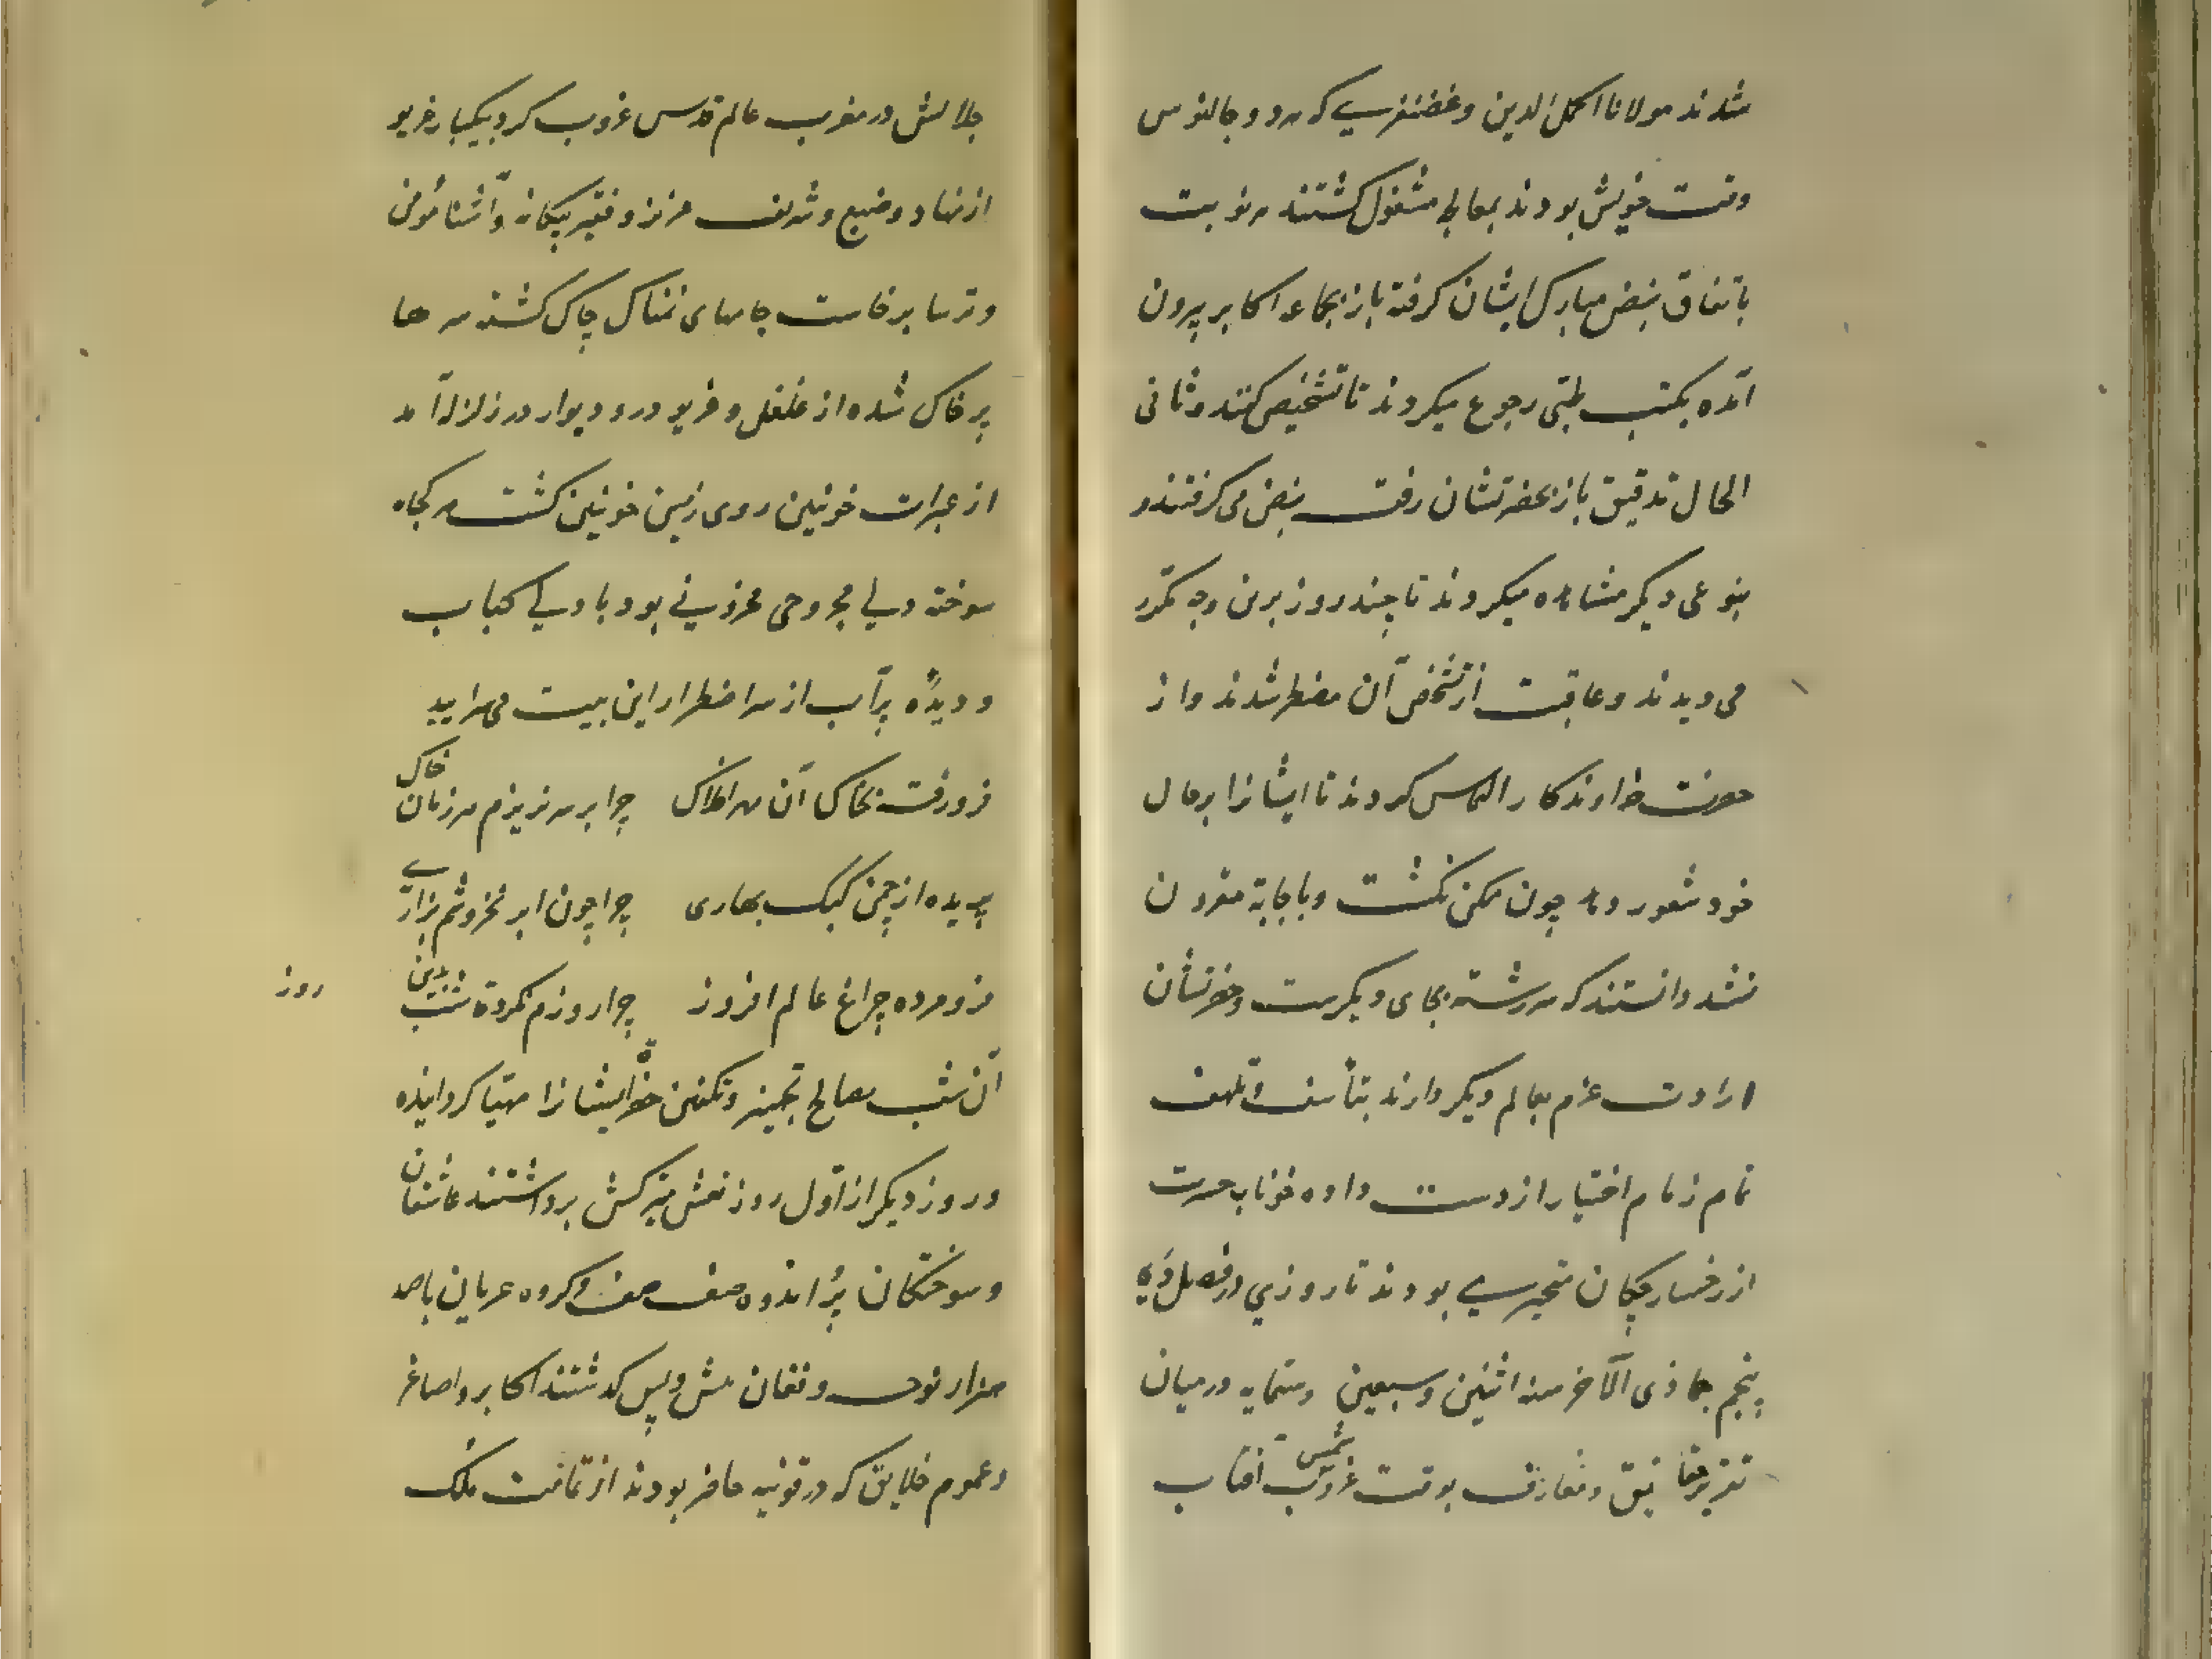 شدند مولانا اکمل الدین و غضنفری که هر دو جالنوس
وقت خویش بودند بمعالجه مشغول کشتند هر نوبت
باتفاق نبض مبارک ایشان کرفته باز بجماعه اکابر بیرون
آمده بکتب طبّی رجوع میکردند تا تشخیص کنند و ثانی
الحال تدقیق باز بحضرتشان رفت نبض می کرفتند و
بنوعی دیکر مشاهده میکردند تا چند روز برین وجه مکرّر
می دیدند و عاقبت از تشخّص آن مضطر شدند و از
حضرت خداوندکار التماس کردند تا ایشانرا بر حال
خود شعور دهد چون ممکن نکشت و باجابة مقرون
نشد دانستند که سررشته بجای دیکرست و حضرتشان
ارادت عزم بعالم دیکر دارند بتأسف و تلهف
تمام زمام اختیار از دست داده خوناب حسرت
از رخسار چکان متحیر بودند تا روزی در فصل دی
پنجم جماذی الآخر سنه اثنین و سبعین و ستمایه در میان
تقریر حقایق و معارف بوقت غروب شمس آفتاب
جلالش در مغرب عالم قدس غروب کرد بیکبار غریو
از نهاد وضیع و شریف عزیز و فقیر بیکانه و آشنا مؤمن
و ترسا برخاست جامهای نمناک چاک کشته سرها
پر خاک شده از غلغل و غریو در و دیوار در زلزله آمد
از عبرات خونین روی زمین خونین کشت هر کجاه
سوخته دلی مجروحی محزونی بود با دلی کباب
و دیدهٔ پرآب از سر اضطرار این بیت می سرایید
فرو رفت بخاک آن سر افلاک چرا بر سر نریزم هر زمان خاک
پریده از چمن کبک بهاری چرا چون ابر نخروشم بزاری
فرو مرده چراغ عالم افروز چرا روزم نکردد شب بدین
روز
آن شب مصالح تجهیز و تکفین حضرة ایشانرا مهیّا کردانیذه
و روز دیکر از اوّل روز نعش متبرکش برداشتند عاشقان
و سوختکان پُر اندوه صف صف و کروه عریان با صد
هزار نوحه و فغان پیش و پس کذشتند اکابر و اصاغر
و عموم خلایق که در قونیه حاضر بودند از تمامت ملک